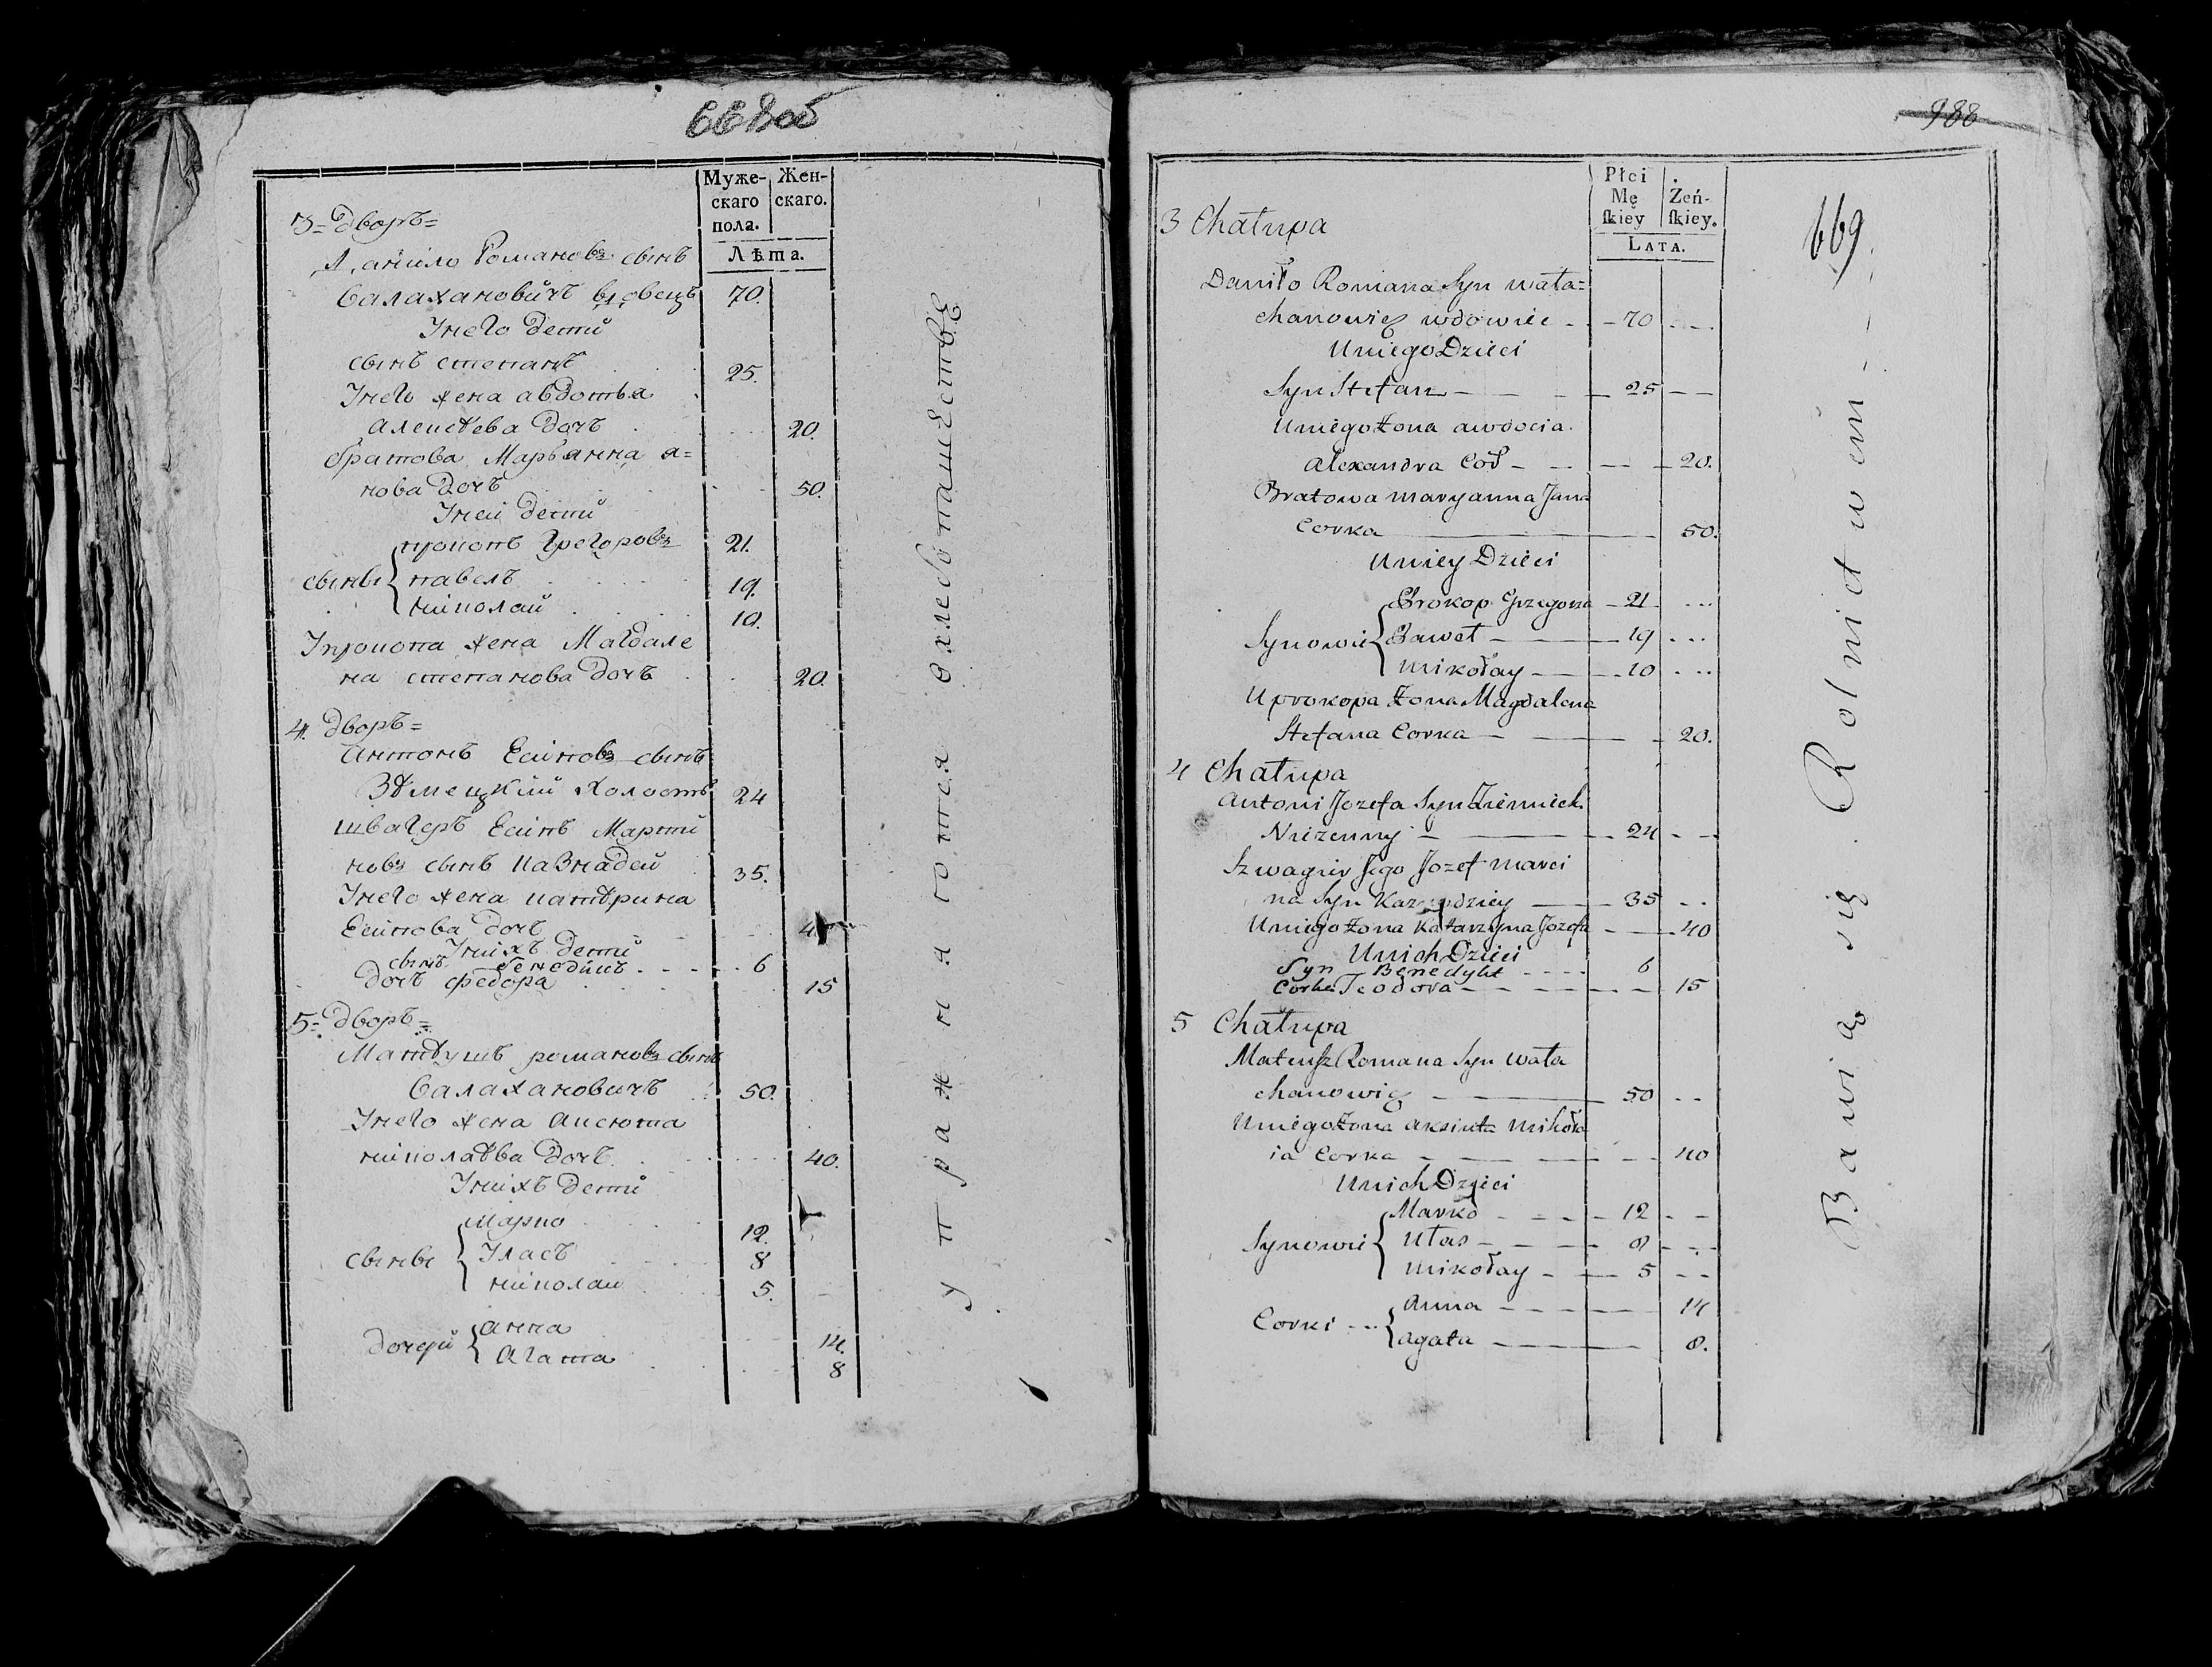 668 об
Муже-
скаго
пола.
Жен-
скаго.
Лѣта.
3 = Дворъ =
Данило Романовъ сынъ
Валахановичъ вдовецъ 70.
Унего дети
сынъ степанъ 25.
Унего жена авдотья
Алексѣева дочь 20.
братова Марьянна я=
нова дочь 50.
Уней дети
сыны { прокопъ Грегоровъ 21.
павелъ 19.
николай 10.
Упрокопа жена Магдале
на степанова дочь 20.
4. дворъ =
Антонъ Есиповъ сынъ
Зѣмецкий холостъ 24
швагеръ Есипъ Марти
новъ сынъ 35.
Унего жена катѣрина
Есипова дочь
Унихъ дети
сынъ бенедиктъ 6
дочь федора 15
5 = дворъ =
Матѣушъ романовъ сынъ
Валахановичъ 50.
Унего жена Аксюта
николаѣва дочь 40.
Унихъ дети
сыны { Марко 12.
Уласъ 8
николай 5.
дочери { анна 14.
Агата 8
Упражнятся охлебопашествѣ
988
669.
Płci
Mę
ſkiey
Żeń-
ſkiey.
LATA.
3 Chałupa
Daniło Romana Syn wała=
chanowicz wdowiec 70
Uniego Dzieci
Syn Stefan 25
Uniego żona awdocia
Alexandra Cór 20.
Bratowa maryanna Jana
Corka 50.
Uniey Dzieci
Synowie { Prokop Grzegorza 21
Paweł 19
Mikołay 10
U prokopa żona Magdalena
Stefana Corka 20.
4 Chałupa
Antoni Jozefa Syn Ziemiecki
Nieżenny 24
Szwagier Jego Jozef marci
na Syn 35
Uniego żona Katarzyna Jozefa 40
Unich Dzieci
Syn Benedykt 6
Corka Teodora 15
5 Chałupa
Mateusz Romana Syn Wała
chanowicz 50
Uniego żona Aksiuta Mikoła
ia Corka 40
Unich Dzieci
Synowie { Marko 12
Ułas 8
Mikołay 5
Corki { Anna 14
Agata 8.
Bawią się Rolnictwem